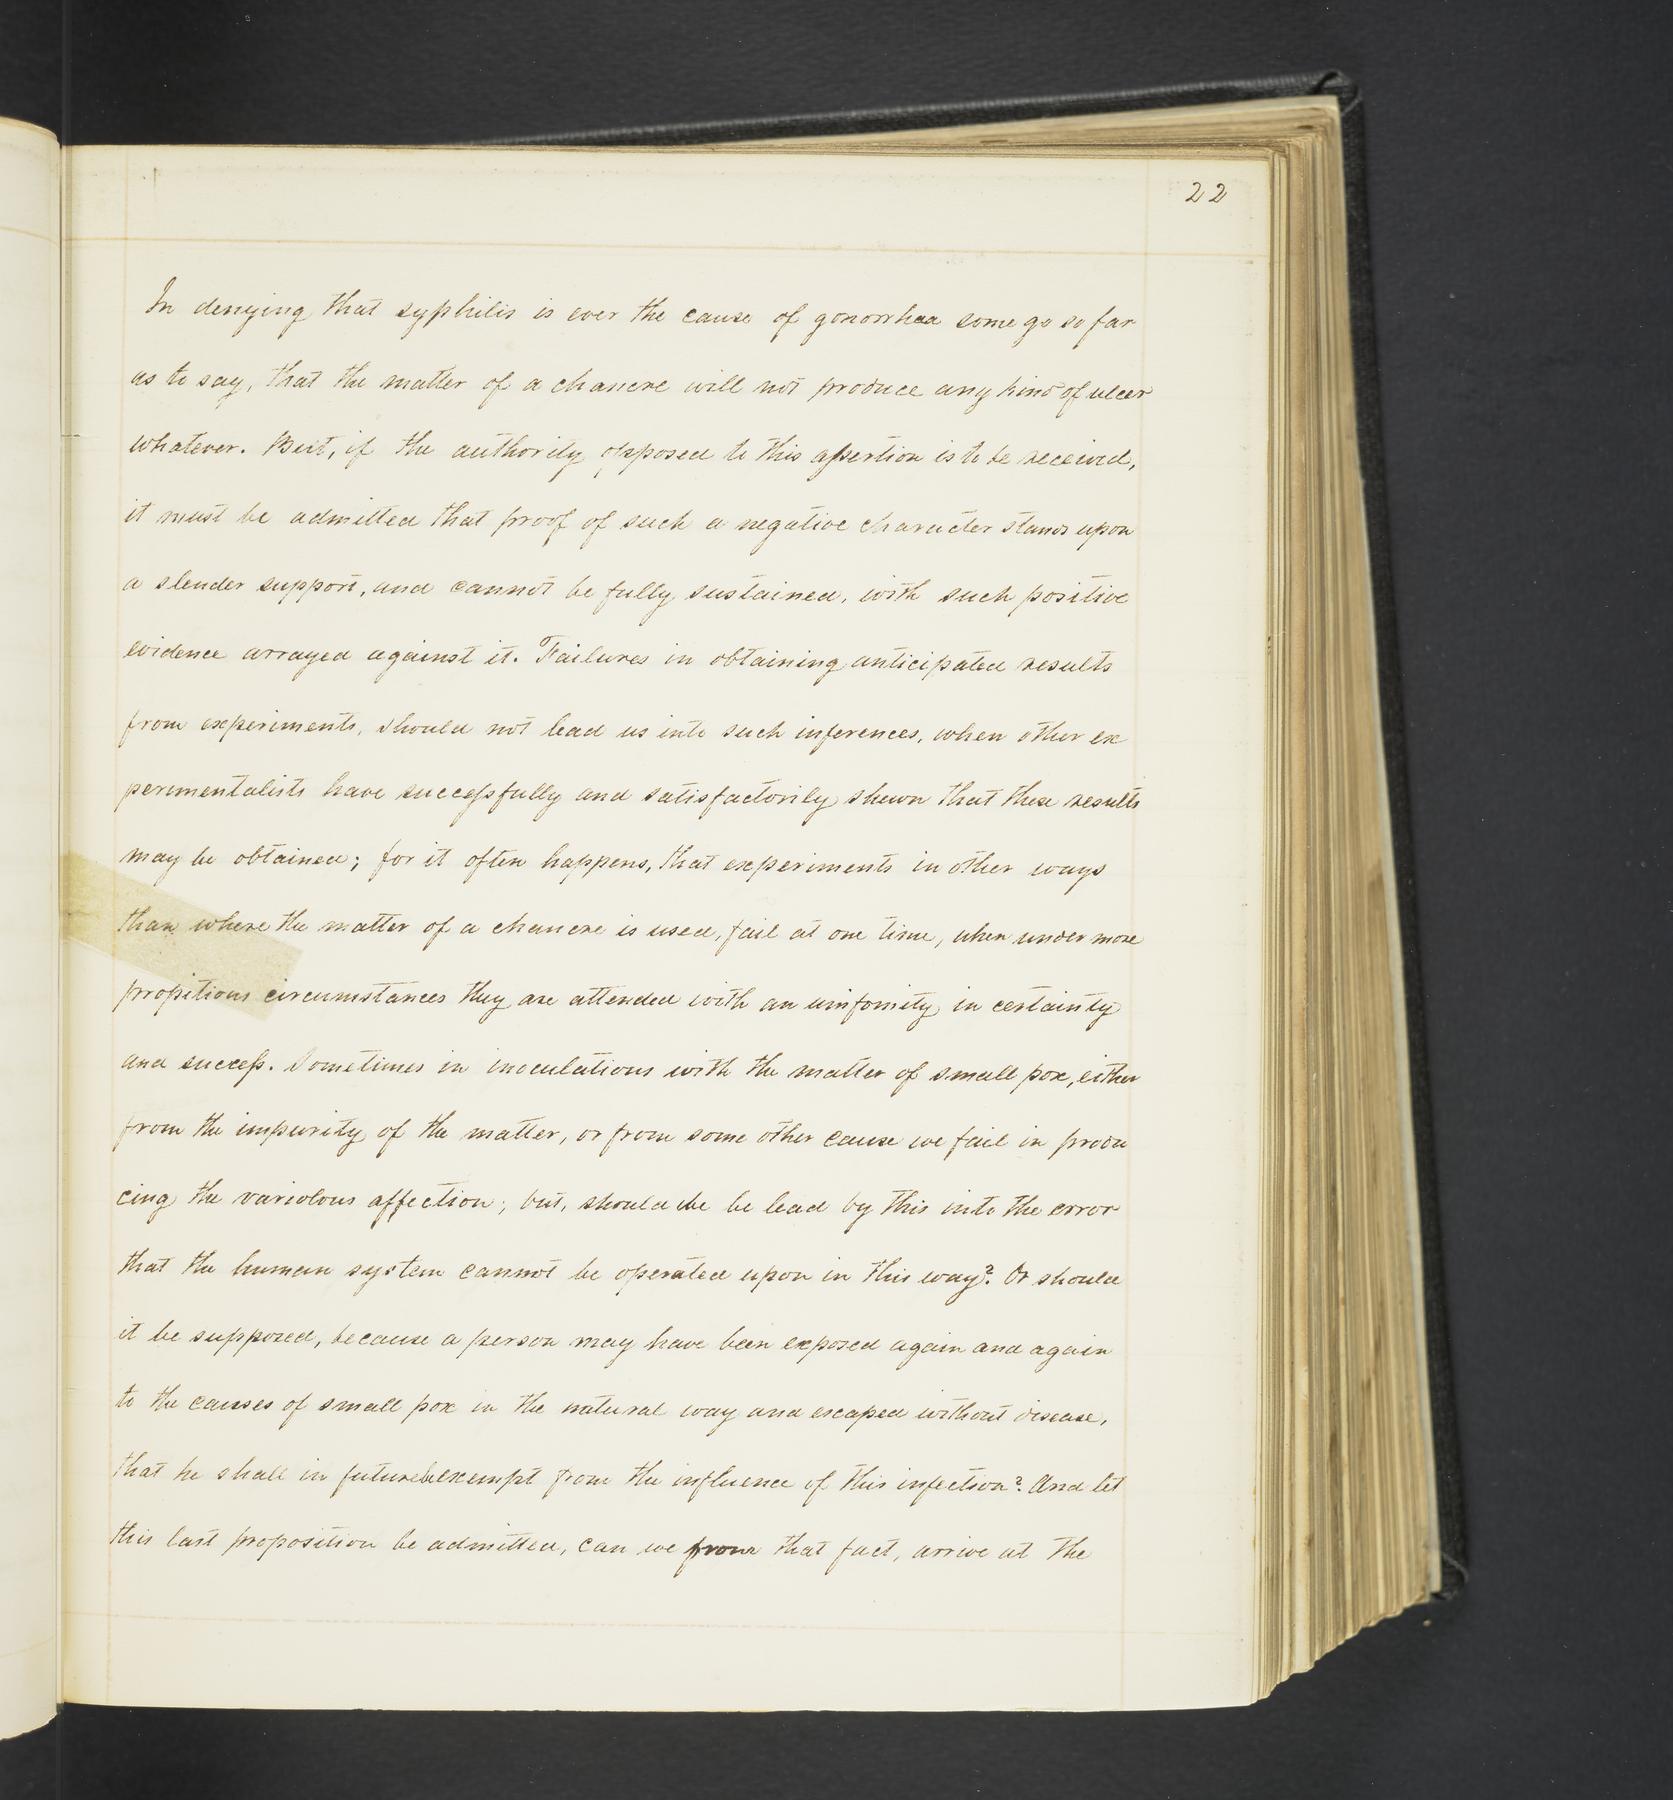 22
In denying that syphilis is ever the cause of gonorrhaa some go so far
as to say, that the matter of a chancre will not produce any kind of ulcer
whatever. But, if the authority opposed to this assertion is to be received,
it must be admitted that proof of such a negative character stands upon
a slender support, and cannot be fully sustained, with such positive
evidence arrayed against it. Failures in obtaining anticipated results
from experiments, should not lead us into such inferences, when other ex
perimentalists have successfully and satisfactorily shewn that these results
may be obtained; for it often happens, that experiments in other ways
than where the matter of a chancre is used, fail at one time, when under more
propitious circumstances they are attended with an uniformity in certainty
and success. Sometimes in inoculations with the matter of small pox, either
from the impurity of the matter, or from some other cause we fail in produ
cing the variolous affection; but, should we be lead by this into the error
that the human system cannot be operated upon in this way? Or should
it be supposed, because a person may have been exposed again and again
to the causes of small pox in the natural way and escaped without disease,
that he shall in future be exempt from the influence of this infection? And let
this last proposition be admitted, can we from that fact, arrive at the